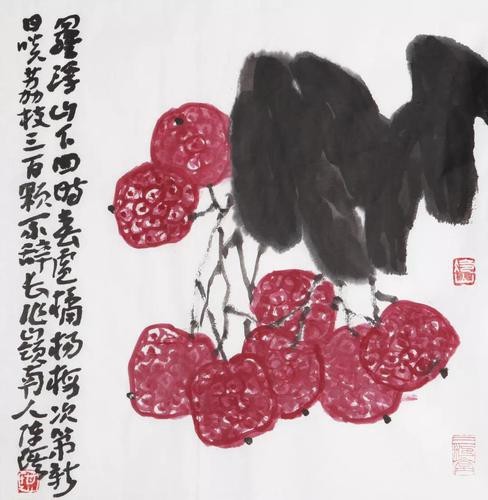 羅浮山下四時春盧橘楊梅次第新
日啖荔枝三百顆不辭長作嶺南人